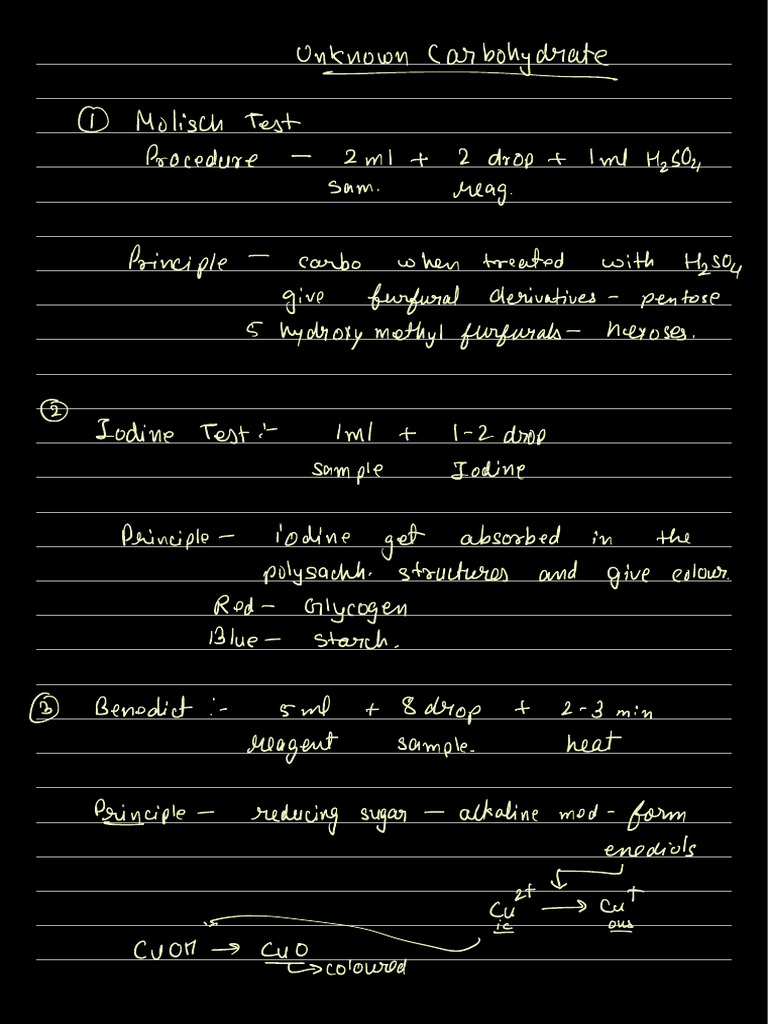 Unknown Carbohydrate
① Molisch Test
Procedure — 2ml + 2 drop + 1ml H₂SO₄
sam. reag.
Principle — carbo when treated with H₂SO₄
give furfural derivatives - pentose
5 hydroxy methyl furfurals — hexoses.
②
Iodine Test :- 1ml + 1-2 drop
sample Iodine
Principle — iodine get absorbed in the
polysachh. structures and give colour.
Red — Glycogen
Blue — starch.
③ Benedict :- 5ml + 8 drop + 2-3 min
reagent sample. heat
Principle — reducing sugar — alkaline med - form
enediols
Cu²⁺ → Cu⁺
ic ous
CuOH → CuO
→ coloured